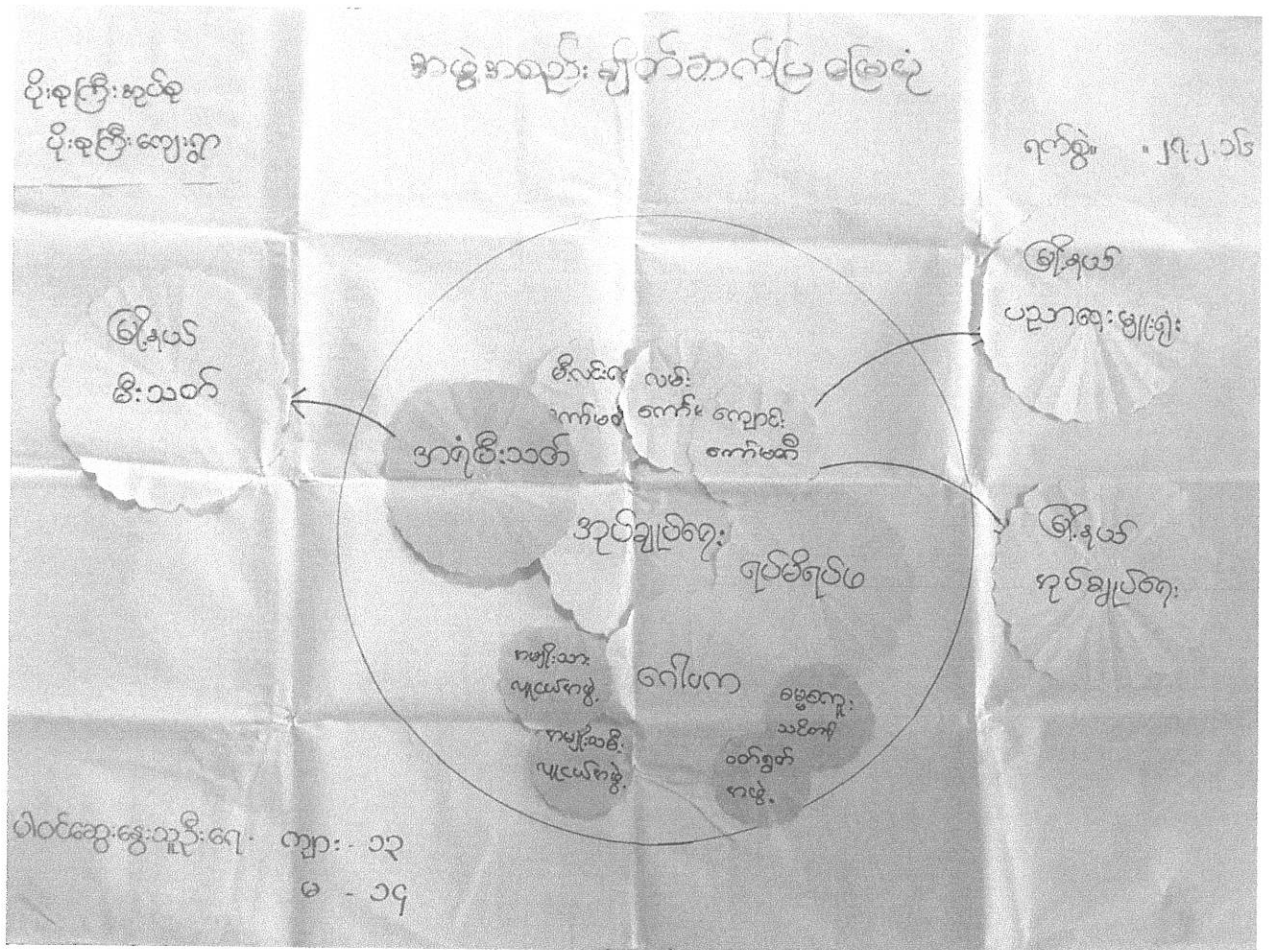 အဖွဲ့အစည်းချိတ်ဆက်ပြမြေပုံ
ပိုးစုကြီးအုပ်စု
ပိုးစုကြီးကျေးရွာ
ရက်စွဲ။ ။ ၂၇.၂.၁၆
မြို့နယ်
မီးသတ်
မြို့နယ်
ပညာရေးမှူးရုံး
မြို့နယ်
အုပ်ချုပ်ရေး
အရံမီးသတ်
မီးလင်းရေ
ကော်မတ
လမ်း
ကော်မ
ကျောင်း
ကော်မတီ
အုပ်ချုပ်ရေး
ရပ်မိရပ်ဖ
အမျိုးသား
လူငယ်အဖွဲ့
ဂေါပက
အမျိုးသမီး
လူငယ်အဖွဲ့
ဓမ္မစကူး
သင်တန်
ဝတ်ရွတ်
အဖွဲ့
ပါဝင်ဆွေးနွေးသူဦးရေ - ကျား - ၁၃
မ - ၁၄